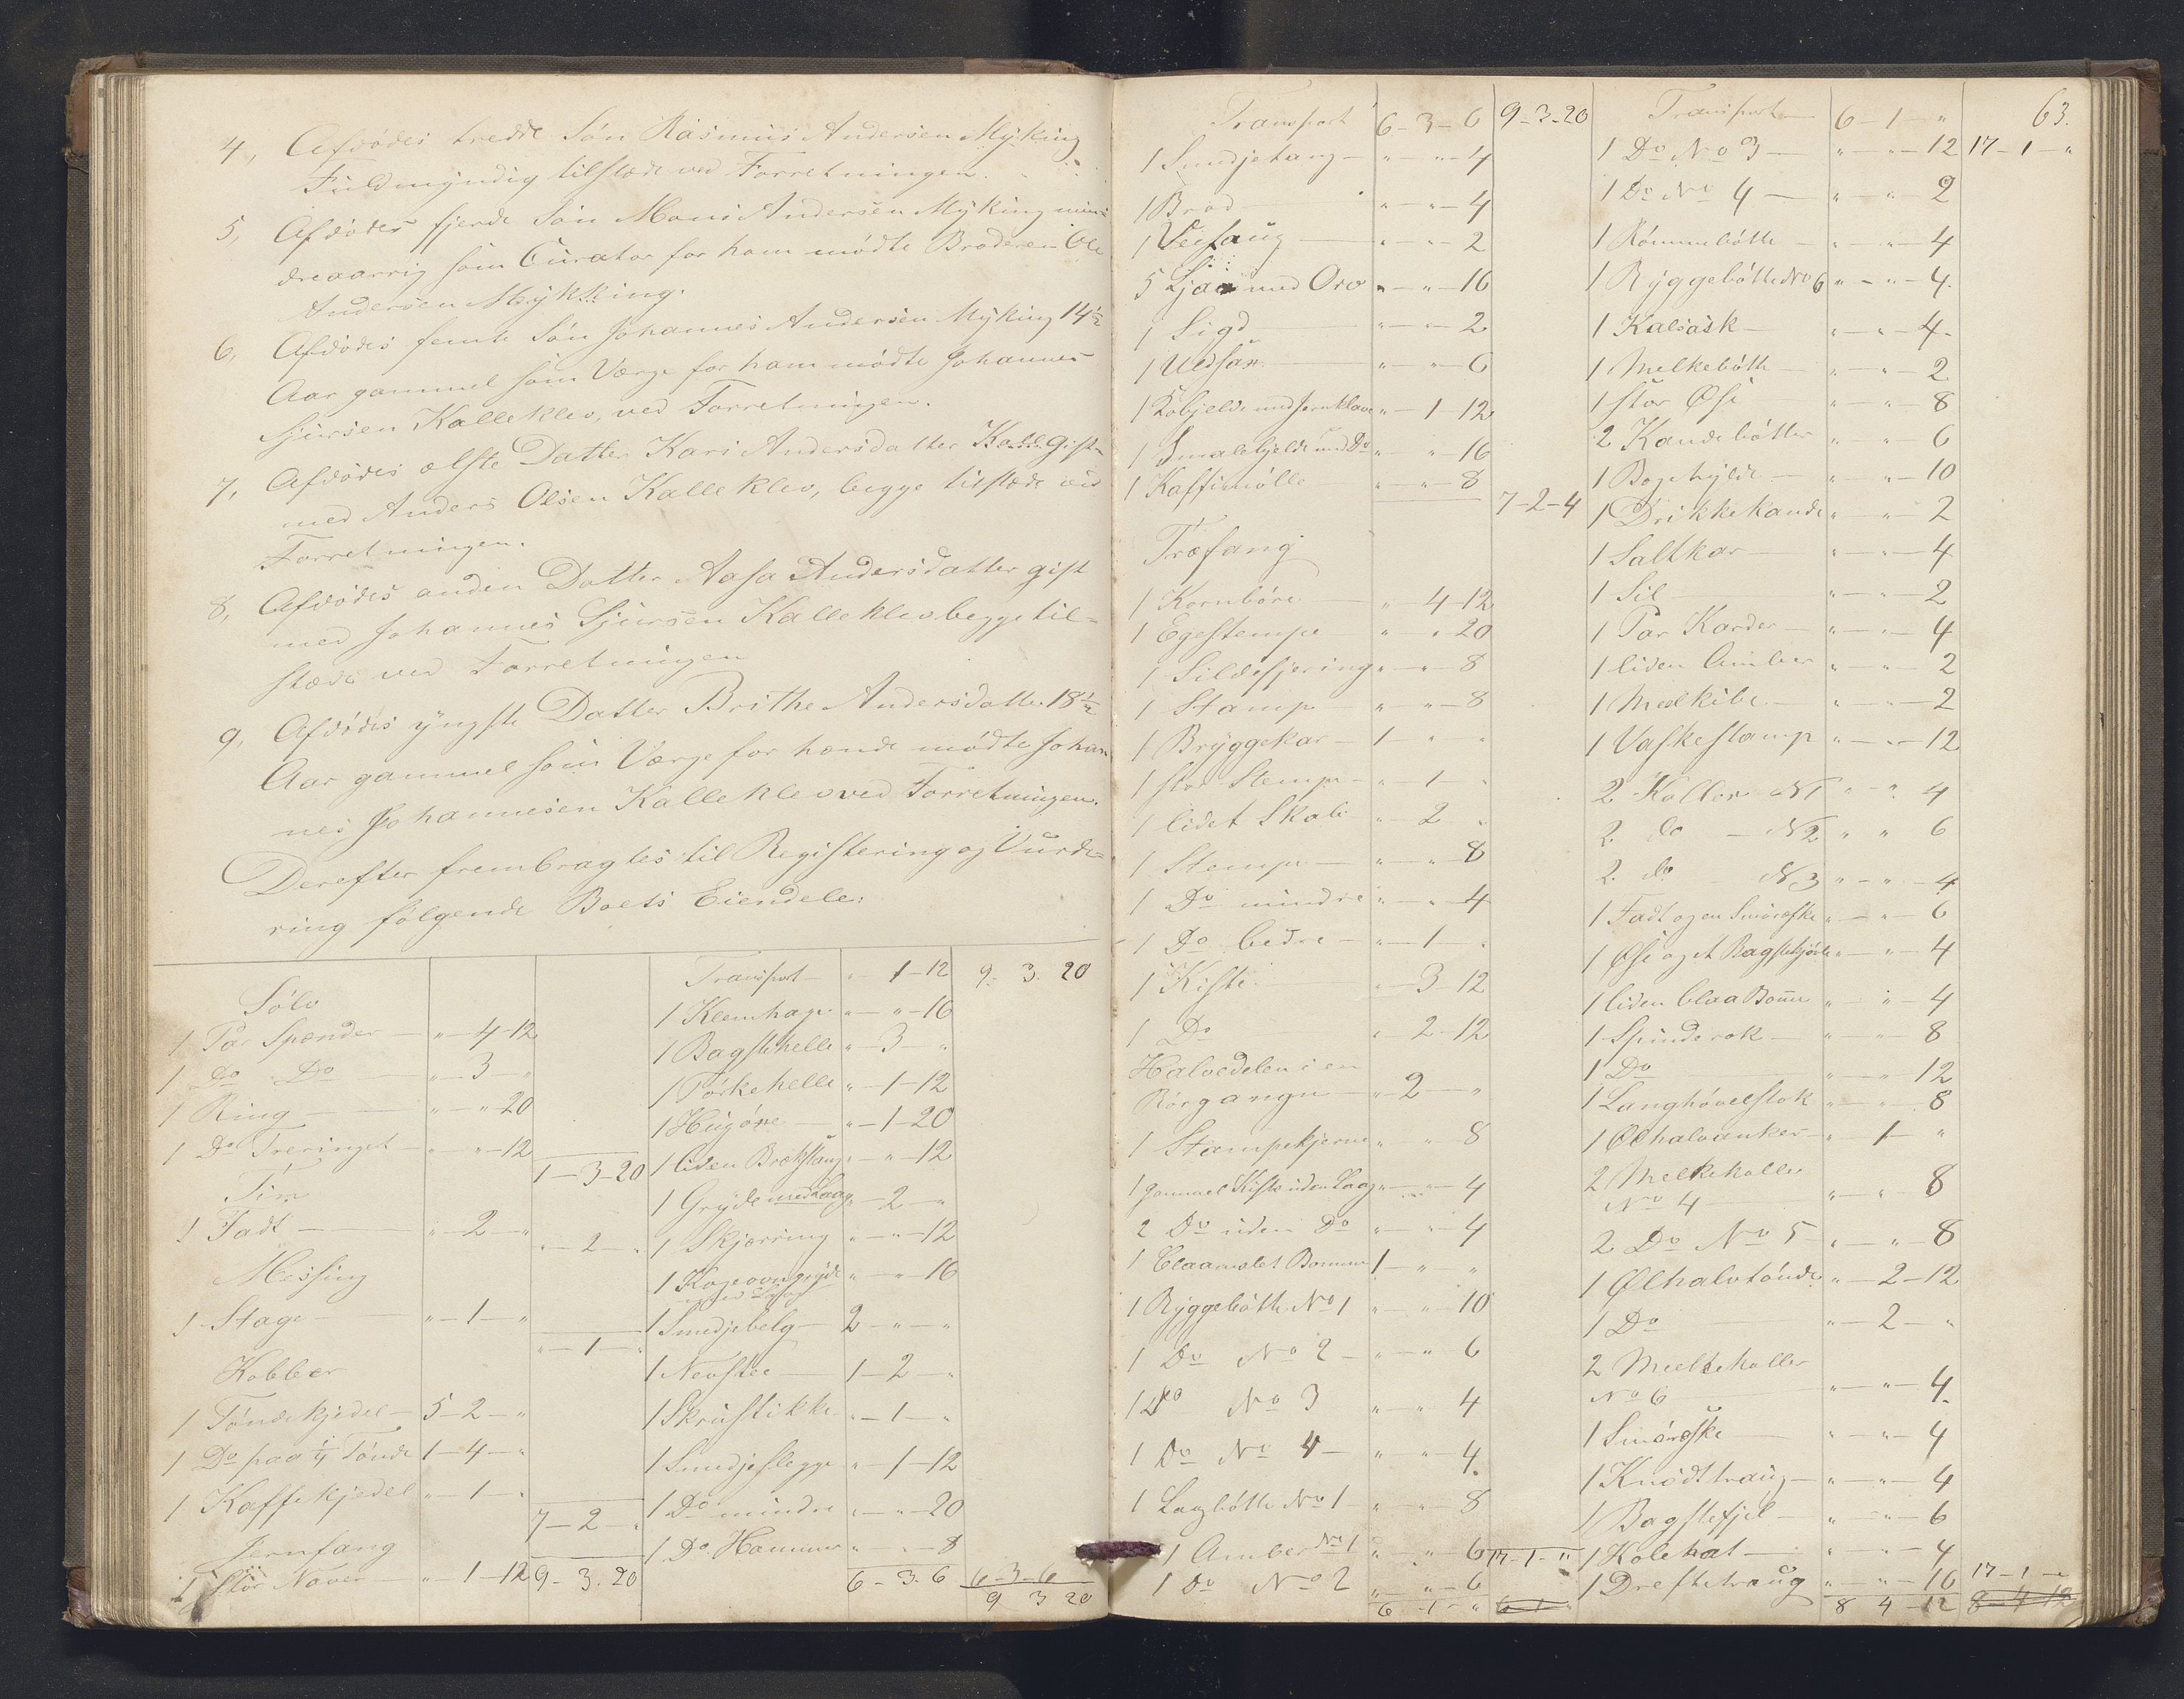 4, Afdødes tredde Søn Rasmus Andersen Myking
Fuldmyndig tilstæde ved Forretningen.
5, Afdødes fjerde Søn Mons Andersen Myking min-
dreaarrig som Curator for ham mødte Broderen Ole
Andersen Myking.
6, Afdødes femte Søn Johannes Andersen Myking 14½
Aar gammel som Værge for ham mødte Johannes
Sjursen Kalleklev, ved Forretningen.
7, Afdødes ælste Datter Kari Andersdatter Kall. Gift
med Anders Olsen Kalleklev, begge tilstæde ved
Forretningen.
8, Afdødes anden Datter Aasa Andersdatter gift
med Johannes Sjursen Kalleklev begge til=
stæde ved Forretningen
9, Afdødes yngste Datter Brithe Andersdatter 18½
Aar gammel som Værge for hende mødte Johan
nes Johannesen Kalleklev ved Forretningen.
Derefter frembragtes til Registering og Vurde=
ring følgende Boets Eiendele:
Sølv
1 Par Spænder - " - 4 - 12
1 Do Do - " - 3 - "
1 Ring - " - " - 20
1 Do Treringet - " - " - 12
1 - 3 - 20
Tin
1 Fadt - " - 2 - "
" - 2 - "
Messing
1 Stage - " - 1 - "
" - 1 - "
Kobber
1 Tøndekjedel - 5 - 2 - "
1 Do paa ¼ Tønde 1 - 4 - "
1 Kaffekjedel - " - 1 - "
7 - 2 - "
Jernfang
1 Stor Naver - " - 1 - 12 9 - 3. 20
Transport - " - 1 - 12 9. 3. 20
1 Klemhage " - " - 16
1 Bagstehelle " - 3 - "
1 Tørkehelle " - 1 - 12
1 Hugøxe " - 1 - 20
1 liden Brækstang " - " - 12
1 Gryde med Laag " - 2 - "
1 Skjærring " - " - 12
1 Kogeovngryde " - " - 16
med Laag
1 Smedjebelg - 2 - " - "
1 Nevstee - 1 - 2 - "
1 Skrustikke " - 1 - "
1 Smedjeslegge " - 1 - 12
1 Do mindre " - " - 20
1 Do Hammer " - " - 8
6 - 3. 6 6 - 3 - 6
9 3 20
Transport 6 - 3 - 6 9 - 3 - 20
1 Smedjetang - " - " - 4
1 Brød " - " - 4
1 Veesaug " - " - 2
5 Ljaa med Orv " - " - 16
1 Sigd " - " - 2
1 Uldsax " - " - 6
1 Kobjelde med Jernklave " - 1 - 12
1 Smalebjelde med Do " - " - 16
1 Kaffemølle " - " - 8
7 - 2 - 4
Træfang
1 Kornbøre " - 4 - 12
1 Egestempe " " 20
1 Sildefjering " - " - 8
1 Stamp " - " - 8
1 Bryggekar - 1 - " - "
1 stor Stempe - " - 1 - "
1 lidet Skab " - 2 - "
1 Stempe " - " - 8
1 Do mindre " - " - 4
1 Do bedre - " - 1 - "
1 Kiste " - 3 - 12
1 Do " - 2 - 12
Halvedelen i en
Rørgangn - " - 2 - "
1 Stampekjerne " - " - 8
1 gammel Kiste uden Laag " - " - 4
2 Do uden Do " - " - 4
1 blaamalet Bomme 1 - " - "
1 Ryggebøtte No 1 " - " - 10
1 Do No 2 - " - " - 6
1 Do No 3 " - " 4
1 Do No 4 - " " - 4.
1 Lagbøtte No 1 - " - " - 8
1 Amber No 1 " " - 6 17 - 1 - "
1 Do No 2 " - " - 6
6 - 1 - " 6 - 1 - "
63.
Transport 6 - 1 - "
1 Do No 3 " - " - 12 17 - 1 - "
1 Do No 4 - " - " - 2
1 Rømmebøtte - " - " - 4
1 Ryggebøtte No 6 " - " - 4.
1 Kalsask " - " - 4.
1 Melkebøtte " - " - 2
1 stor Øse " - " - 8
2 Kandebøtter " - " - 6
1 Bogehylde " - " - 10
1 Drikkekande " - " - 2
1 Saltkar " - " - 4
1 Sil " - " - 2
1 Par Karder " - " - 4
1 liden Amber " - " - 2
1 Meelkibe " - " - 2
1 Vaskestamp " - " - 12
2 Koller N1 " - " 4
2 do - N2 " " 6
2 do - N3 " - " - 4
1 Fadt og en Smørøske " - " - 6
1 Øse og et Bagstekjevle " - " - 4
1 liden blaa Bomme " - " - 4
1 Spinderok " - " - 8
1 Do " - " - 12
1 Langhøvelstok " - " - 8
1 Ølhalvanker - " - 1 - "
2 Melkekoller
No 4 " - " - 8
2 Do No 5 " - " - 8
1 Ølhalvtønde " - 2 - 12
1 Do " - 2 - "
2 Melkekoller
No 6 " - " - 4.
1 Smørøske " - " - 4
1 Knodttraug " - " - 4
1 Bagstefjel " - " - 6
1 Kolehat " - " - 4
1 Dreftetraug " - " - 16 17 - 1 - "
8 4 - 12 8 - 4 12